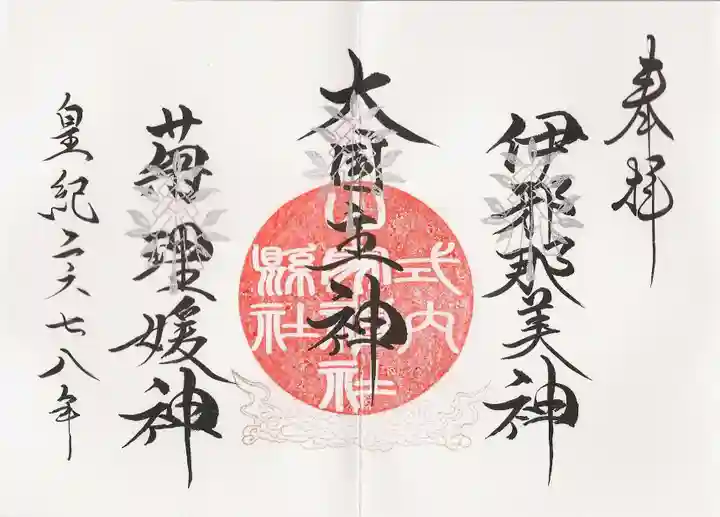 奉拝
伊邪那美神
大国主神
菊理媛神
皇紀二六七八年
式内
山家神社
縣社